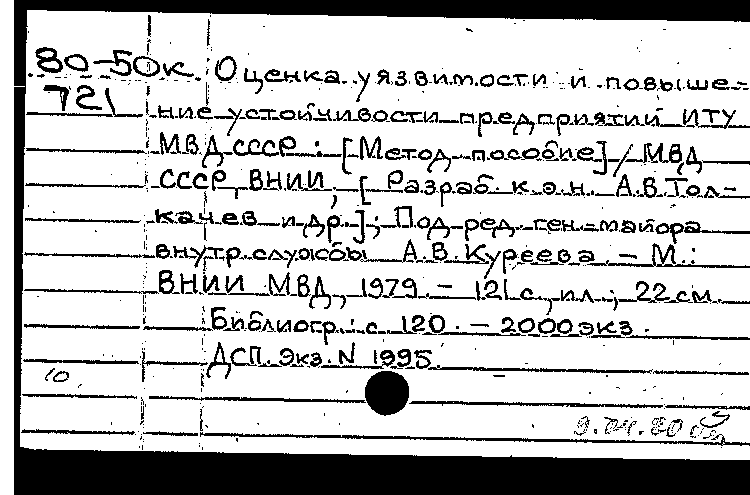 80-50к. Оценка уязвимости и повыше-
721 ние устойчивости предприятий ИТУ
МВД СССР : [Метод. пособие] / МВД
СССР, ВНИИ; [Разраб. к.э.н. А.В.Тол-
качев и др.]; Под ред. ген.-майора
внутр.службы А.В.Куреева. – М.:
ВНИИ МВД, 1979. – 121 с., ил.; 22 см.
Библиогр.: с 120. – 2000 экз.
ДСП. Экз. N 1995.
10.
9.04.80